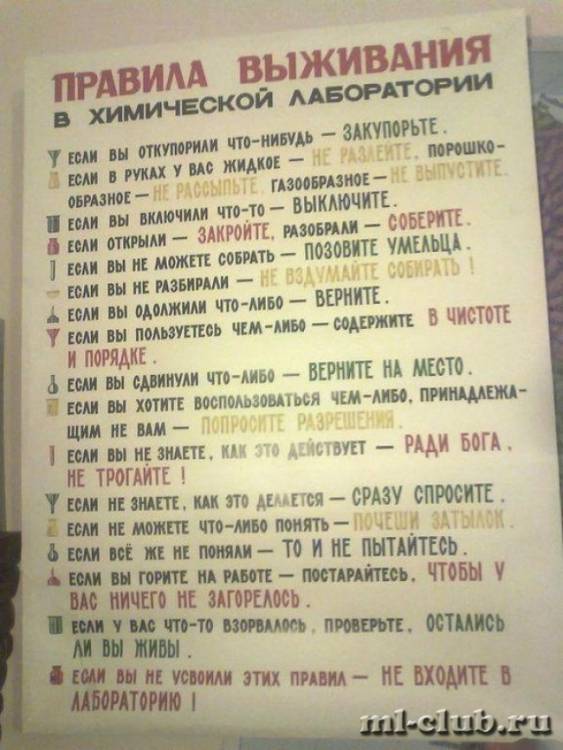 ПРАВИЛА ВЫЖИВАНИЯ
В ХИМИЧЕСКОЙ ЛАБОРАТОРИИ
ЕСЛИ ВЫ ОТКУПОРИЛИ ЧТО-НИБУДЬ — ЗАКУПОРЬТЕ.
ЕСЛИ В РУКАХ У ВАС ЖИДКОЕ — НЕ РАЗЛЕЙТЕ, ПОРОШКО-
ОБРАЗНОЕ — НЕ РАССЫПЬТЕ, ГАЗООБРАЗНОЕ — НЕ ВЫПУСТИТЕ.
ЕСЛИ ВЫ ВКЛЮЧИЛИ ЧТО-ТО — ВЫКЛЮЧИТЕ.
ЕСЛИ ОТКРЫЛИ — ЗАКРОЙТЕ, РАЗОБРАЛИ — СОБЕРИТЕ.
ЕСЛИ ВЫ НЕ МОЖЕТЕ СОБРАТЬ — ПОЗОВИТЕ УМЕЛЬЦА.
ЕСЛИ ВЫ НЕ РАЗБИРАЛИ — НЕ ВЗДУМАЙТЕ СОБИРАТЬ !
ЕСЛИ ВЫ ОДОЛЖИЛИ ЧТО-ЛИБО — ВЕРНИТЕ.
ЕСЛИ ВЫ ПОЛЬЗУЕТЕСЬ ЧЕМ-ЛИБО — СОДЕРЖИТЕ В ЧИСТОТЕ
И ПОРЯДКЕ.
ЕСЛИ ВЫ СДВИНУЛИ ЧТО-ЛИБО — ВЕРНИТЕ НА МЕСТО.
ЕСЛИ ВЫ ХОТИТЕ ВОСПОЛЬЗОВАТЬСЯ ЧЕМ-ЛИБО, ПРИНАДЛЕЖА-
ЩИМ НЕ ВАМ — ПОПРОСИТЕ РАЗРЕШЕНИЯ.
ЕСЛИ ВЫ НЕ ЗНАЕТЕ, КАК ЭТО ДЕЙСТВУЕТ — РАДИ БОГА,
НЕ ТРОГАЙТЕ !
ЕСЛИ НЕ ЗНАЕТЕ, КАК ЭТО ДЕЛАЕТСЯ — СРАЗУ СПРОСИТЕ.
ЕСЛИ НЕ МОЖЕТЕ ЧТО-ЛИБО ПОНЯТЬ — ПОЧЕШИ ЗАТЫЛОК.
ЕСЛИ ВСЁ ЖЕ НЕ ПОНЯЛИ — ТО И НЕ ПЫТАЙТЕСЬ.
ЕСЛИ ВЫ ГОРИТЕ НА РАБОТЕ — ПОСТАРАЙТЕСЬ, ЧТОБЫ У
ВАС НИЧЕГО НЕ ЗАГОРЕЛОСЬ.
ЕСЛИ У ВАС ЧТО-ТО ВЗОРВАЛОСЬ, ПРОВЕРЬТЕ, ОСТАЛИСЬ
ЛИ ВЫ ЖИВЫ.
ЕСЛИ ВЫ НЕ УСВОИЛИ ЭТИХ ПРАВИЛ — НЕ ВХОДИТЕ В
ЛАБОРАТОРИЮ !
ml-club.ru